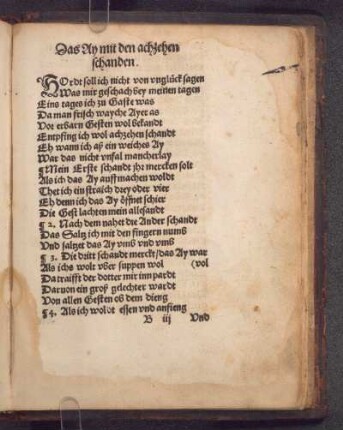 Das Ay mit den achzehen
schanden.
HOrdt soll ich nicht von vnglück sagen
Was mir geschach bey meinen tagen
Eins tages ich zu Gaste was
Da man frisch wayche Ayer as
Vor erbarn Gesten wol bekandt
Entpfing ich wol achzehen schandt
Eh wann ich aß ein weiches Ay
War das nicht vnfal mancherlay
¶ Mein Erste schandt jhr mercken solt
Als ich das Ay auffmachen woldt
Thet ich ein straich drey oder vier
Eh denn ich das Ay öffnet schier
Die Gest lachten mein allesandt
¶ 2. Nach dem nahet die Ander schandt
Das Saltz ich mit den fingern numb
Vnd saltzet das Ay vmb vnd vmb
¶ 3. Die dritt schandt merckt/das Ay war
Als ichs wolt vber suppen wol (vol
Da traifft der dotter mir inn part
Daruon ein groß gelechter wardt
Von allen Gesten ob dem dieng
¶ 4. Als ich woldt essen vnd anfieng
B iij Vnd